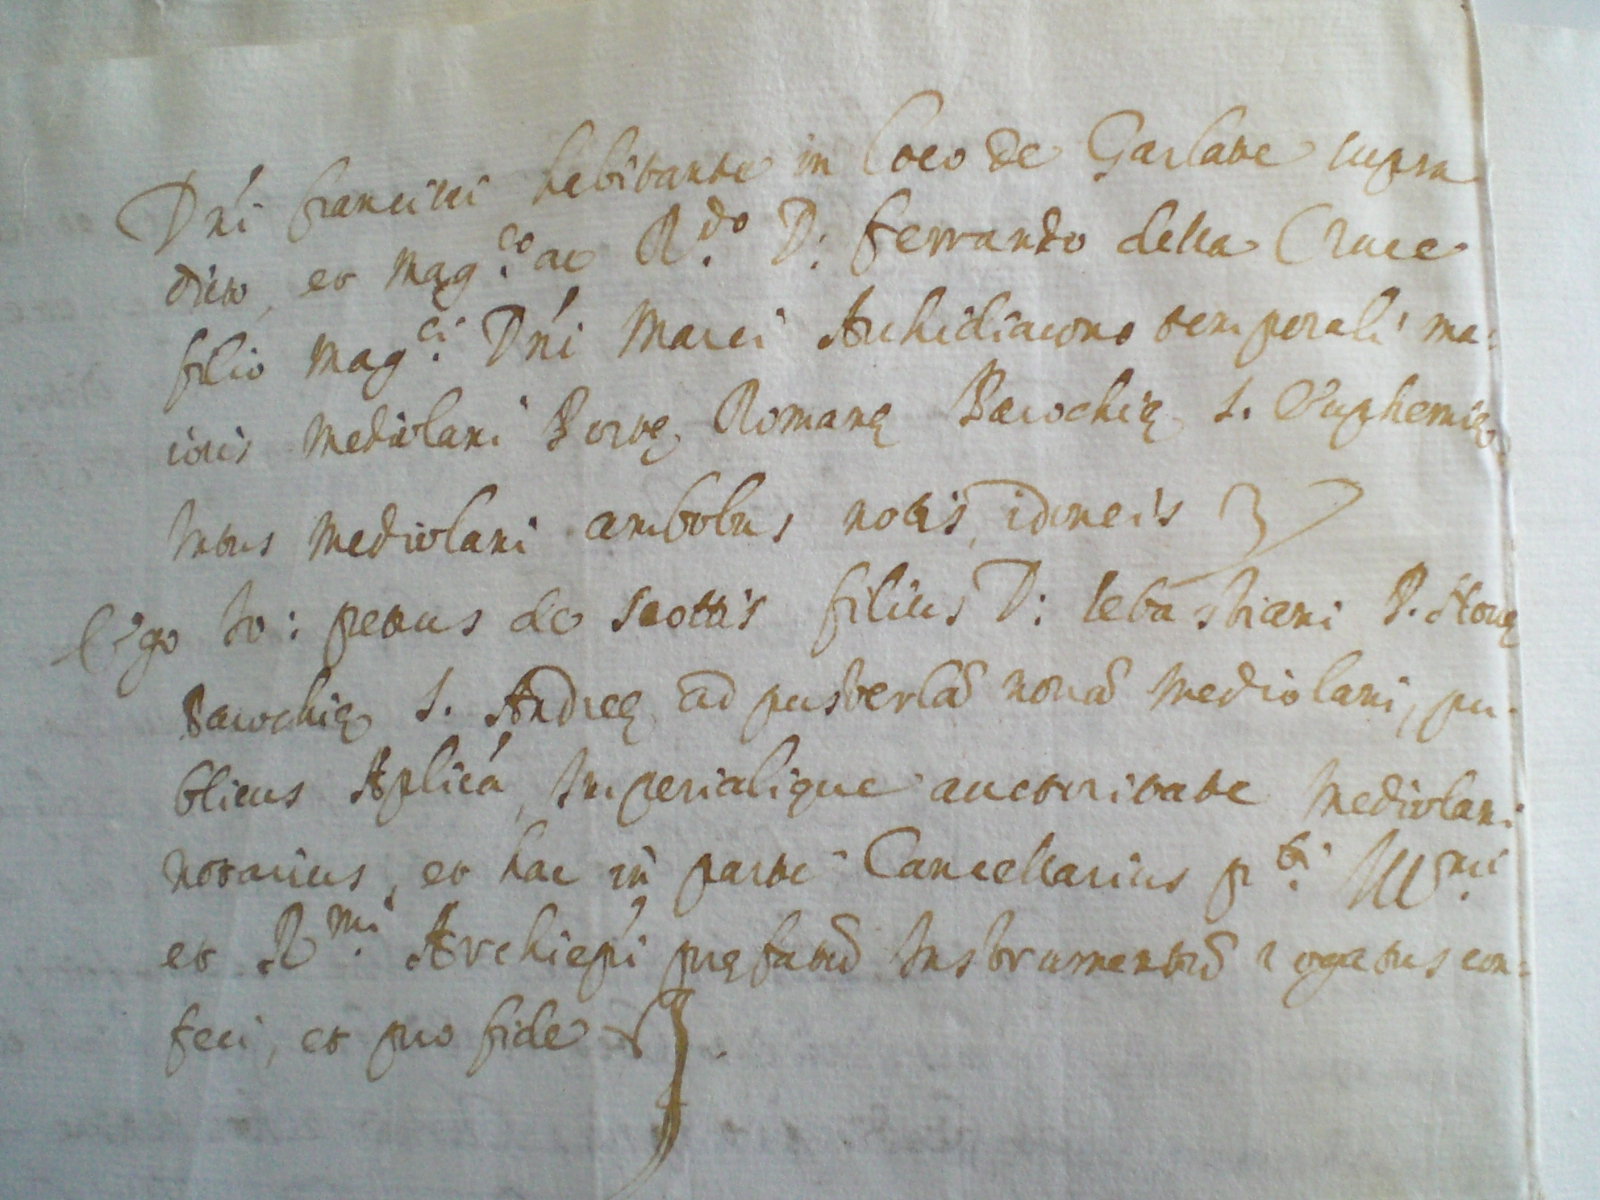 Dñi francisci habitante in loco de Garlate supra
dicto, et Mag.co ac R.do D: Ferrando della Cruce
filio Mag.ci Dñi Marci Archidiacono temporali ma:
ioris Mediolani Portę Romanę Parochię S. Euphemię
Intus Mediolani ambobus notis, idoneis
Ego Io: petrus de scottis filius D: sebastiani P. Nouę
Parochię S. Andreę ad pusterlā nouā Mediolani, pu:
blicus Aplicá, Imperialique auctoritate Mediolani
notarius, et hac in parte Cancellarius p.ti Ill.mi
et R.mi Archiepi prębatū Instrumentū rogatus con:
feci, et pro fide